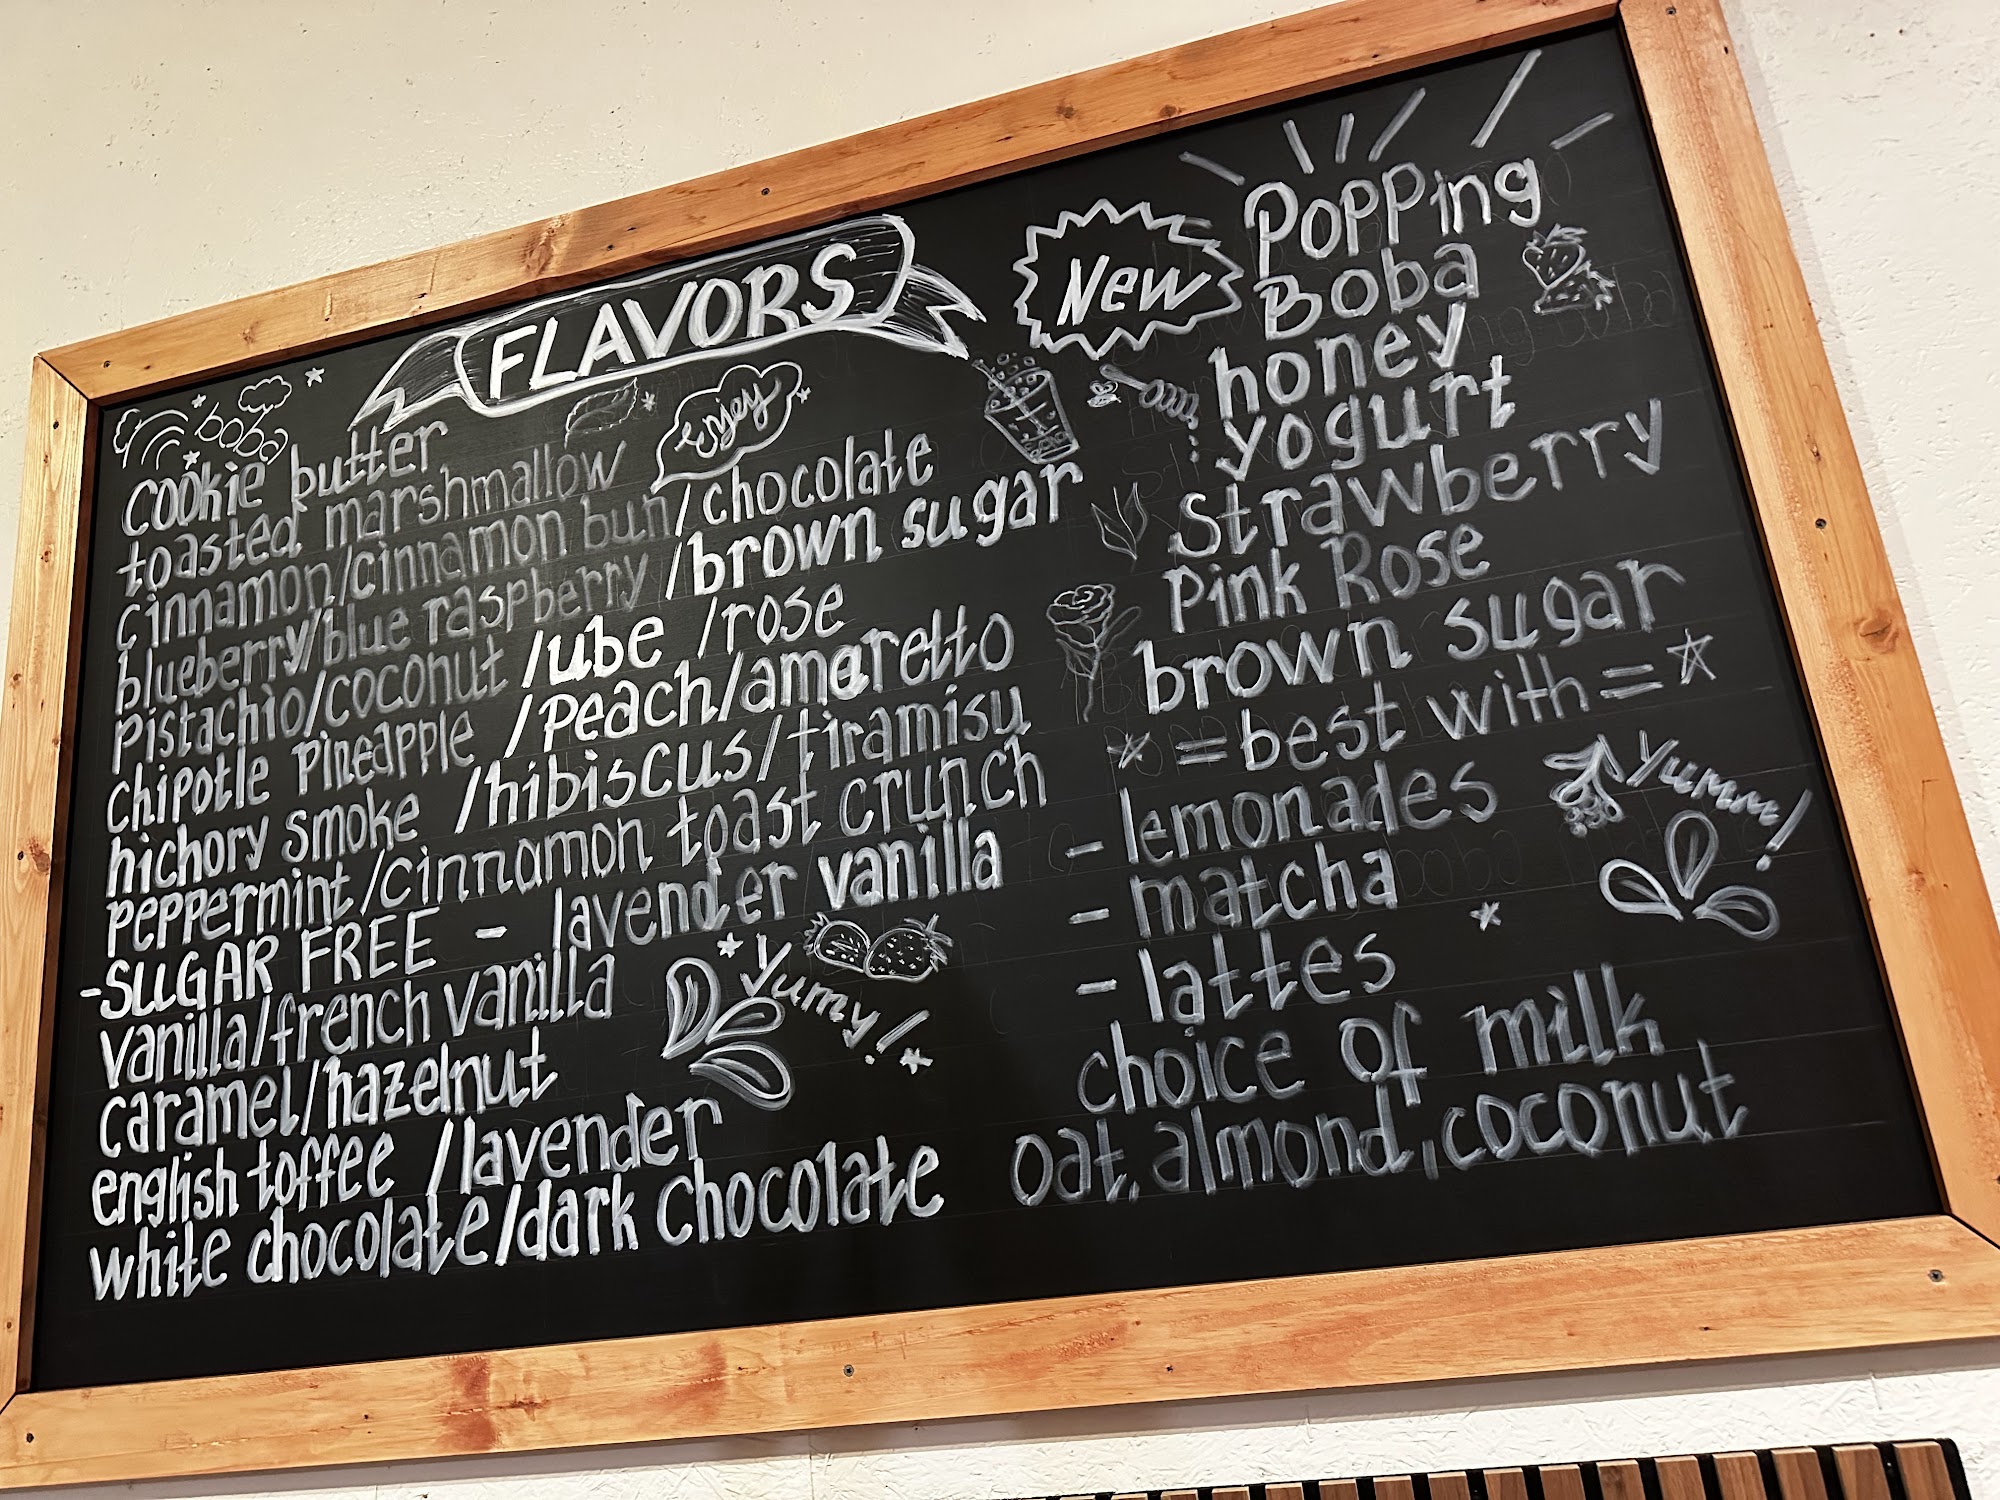 FLAVORS
boba
Enjoy
cookie butter
toasted marshmallow
cinnamon/cinnamon bun/chocolate
blueberry/blue raspberry/brown sugar
Pistachio/coconut/ube/rose
chipotle Pineapple/Peach/amaretto
hichory smoke/hibiscus/tiramisu
peppermint/cinnamon toast crunch
-SUGAR FREE - lavender vanilla
vanilla/french vanilla
caramel/hazelnut
english toffee/lavender
white chocolate/dark chocolate
Yumy!
New
Popping
Boba
honey
yogurt
Strawberry
Pink Rose
brown sugar
* = best with = *
- lemonades
- matcha
- lattes
Yumm!
choice of milk
oat, almond, coconut